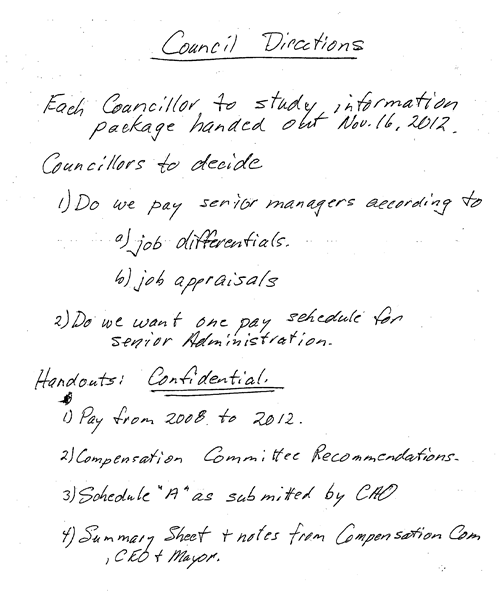 Council Directions
Each Councillor to study information
package handed out Nov. 16, 2012.
Councillors to decide
1) Do we pay senior managers according to
a) job differentials.
b) job appraisals
2) Do we want one pay schedule for
senior Administration.
Handouts: Confidential.
1) Pay from 2008 to 2012.
2) Compensation Committee Recommendations.
3) Schedule "A" as submitted by CAO
4) Summary Sheet + notes from Compensation Com
, CEO + Mayor.